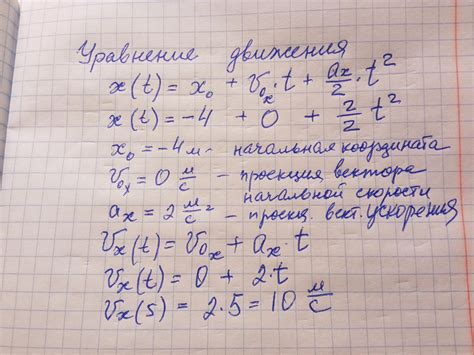 Уравнение движения
x(t) = x₀ + v₀ₓ·t + aₓ/2·t²
x(t) = -4 + 0 + 2/2 t²
x₀ = -4м - начальная координата
v₀ₓ = 0 м/с - проекция вектора
начальной скорости
aₓ = 2 м/с² - проекц. вект. ускорения
vₓ(t) = v₀ₓ + aₓ·t
vₓ(t) = 0 + 2·t
vₓ(5) = 2·5 = 10 м/с